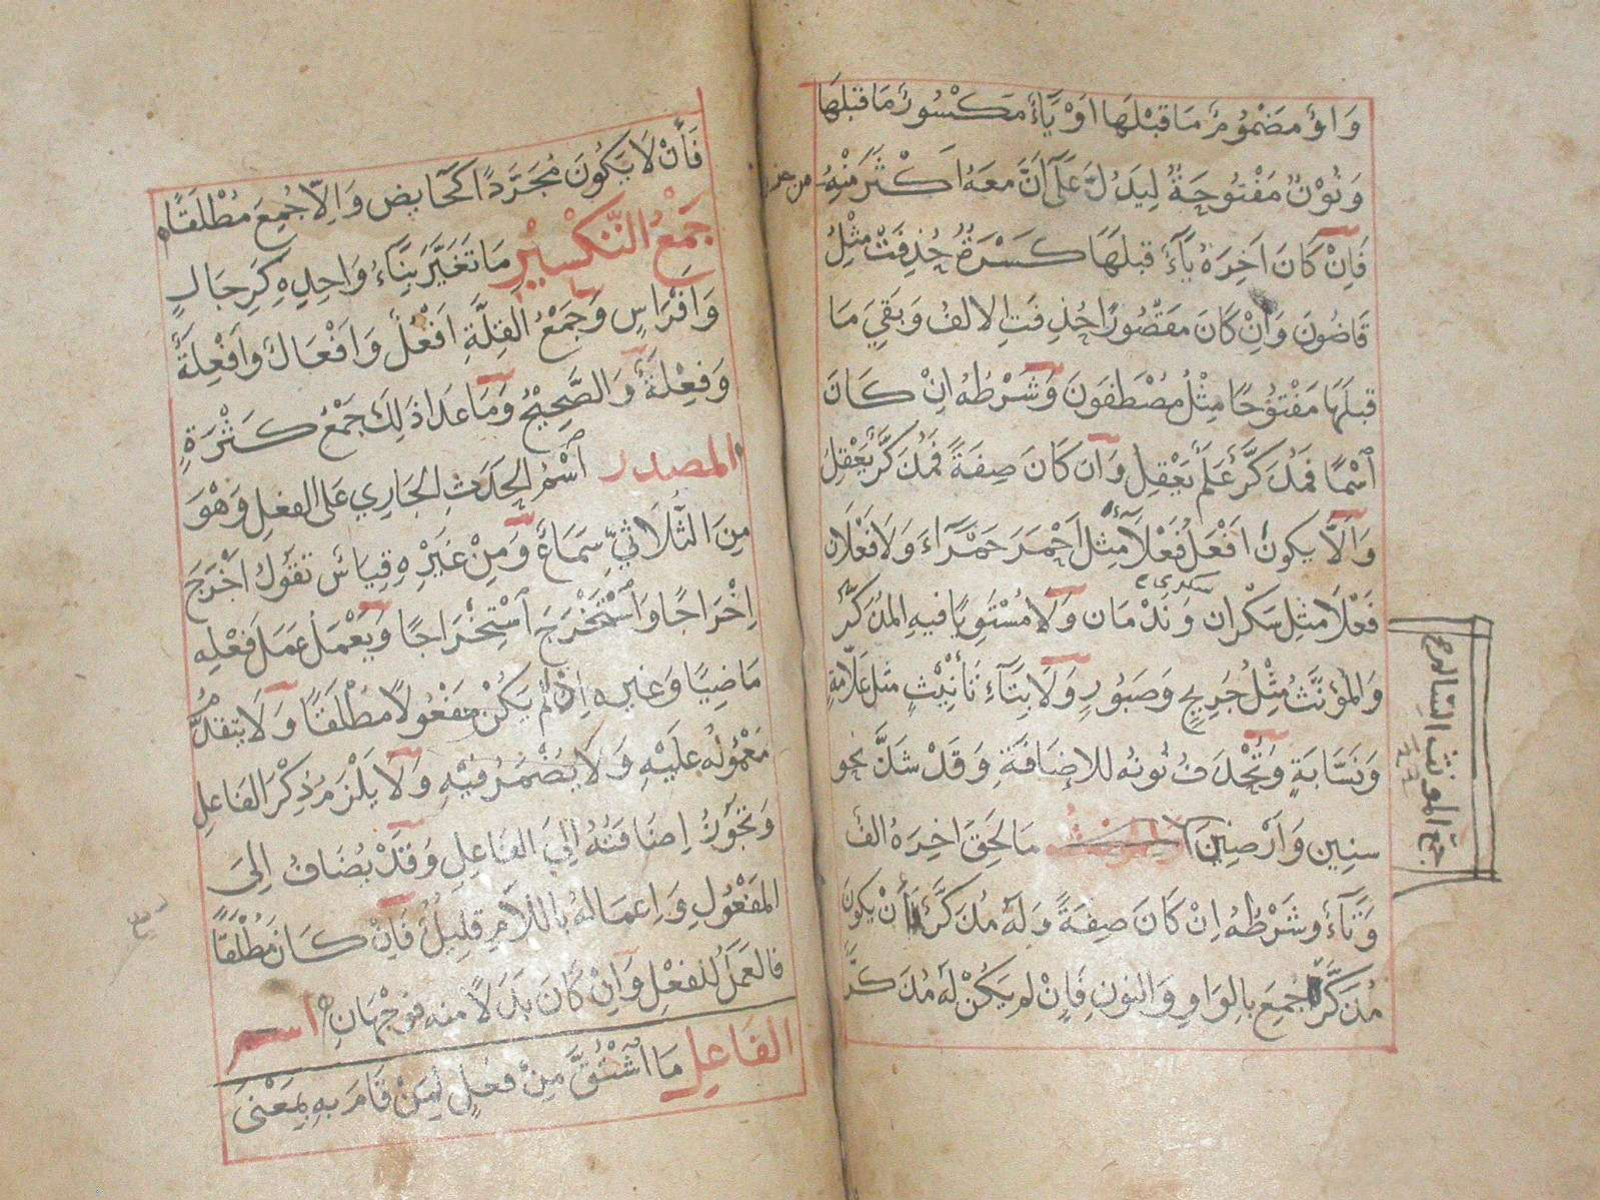 وَاوٌ مَضْمُومٌ مَا قَبْلَهَا اَوْ يَآءٌ مَكْسُورٌ مَا قَبْلَهَا
وَنُوْنٌ مَفْتُوحَةٌ لِيَدُلَّ عَلَى اَنَّ مَعَهُ اَكْثَرَ مِنْهُ
فَاِنْ كَانَ اَخِرَهُ يَآءً قَبْلَهَا كَسْرَةٌ حُذِفَتْ مِثْلُ
قَاضُونَ وَاِنْ كَانَ مَقْصُورًا حُذِفَتِ الالفُ وَبَقِيَ مَا
قَبْلَهَا مَفْتُوْحًا مِثْلُ مُصْطَفَونَ وَشَرْطُهُ اِنْ كَانَ
اسْمًا فَمُذَكَّرٌ عَلَمٌ يَعْقِلُ وَاِن كَانَ صِفَةً فَمُذَكَّرٌ يَعْقِلُ
وَاَلَّا يكونَ اَفْعَلُ فَعْلَآءَ مِثلَ اَحْمَرَ حَمْرَاءَ وَلَا فَعْلَان
فَعْلَا مثلِ سَكْران وَنَدْمَان وَلَا مُسْتَوِيًا فيهِ المذكَّرُ
وَالْمُؤنَّثُ مِثْلُ جَرِيحٍ وَصَبُورٍ وَلَا بِتَآءِ تَأْنِيْثٍ مثلِ عَلَّامَةٍ
وَنَسَّابَةٍ وَتُحْذَفُ نُونُه للاِضَافَةِ وَقَدْ شَذَّ نحو
سنِين وَاَرْضِيْنَ المؤنث مَا لحَقَ اخِرَهُ الفٌ
وَتَآءٌ وشَرْطُهُ اِنْ كَانَ صِفَةً وَلَهُ مُذَكَّرٌ فَأَنْ يَكونَ
مُذَكَّرُهُ جُمِعَ بالوَاوِ وَالنونِ فَاِنْ لم يَكُنْ لَهُ مُذَكَّرٌ
جمع المونث السالم
فَأَنْ لَا يَكُونَ مُجَرَّدًا كَحَايِض وَاِلَّا جُمِعَ مُطْلَقًا
جَمْعُ التَّكْسِيْرِ مَا تَغَيَّرَ بِنَاءُ وَاحِدِهِ كَرِجَالٍ
وَاَفْرَاسٍ وَجَمْعُ القِلَّةِ اَفْعُلٌ وَاَفْعَالٌ وَاَفْعِلَةٌ
وَفِعْلَةٌ وَالصَّحِيْحُ وَمَا عَدَا ذَلِكَ جَمْعُ كَثْرَةٍ
المصدر اسْمُ الحَدَثِ الجَارِي عَلى الفعلِ وَهْوَ
مِنَ الثُّلَاثِيِّ سِمَاعٌ وَمِنْ غَيْرِهِ قِيَاسٌ تقوُلُ اَخْرَجَ
اِخْرَاجًا وَاسْتَخْرَجَ اسْتِخْرَاجًا وَيَعْمَلُ عَمَلَ فِعْلِهِ
مَاضِيًا وَغيره اِذْ لَمْ يَكُنْ مَفْعُولًا مُطْلَقًا وَلَا يتقدَّمُ
مَعْمُولُه عَلَيْهِ وَلَا يُضْمَرُ فيْهِ وَلَا يَلْزَمُ ذِكْرُ الفَاعِلِ
وَيَجُوْزُ اِضَافَتُهُ اِلَي الفَاعِلِ وَقَدْ يُضَافُ اِلَى
المَفْعُولِ وَاِعمَالهُ باللَّامِ قلِيلٌ فَاِنْ كَانَ مُطْلَقًا
فالعَمَلُ للفعْلِ وَاِنْ كَانَ بَدَلًا منه فوَجْهَانِ اسم
الفَاعِلِ مَا اشْتُقَّ مِنْ فعلٍ لِمَنْ قَامَ بهِ بِمَعْنَى